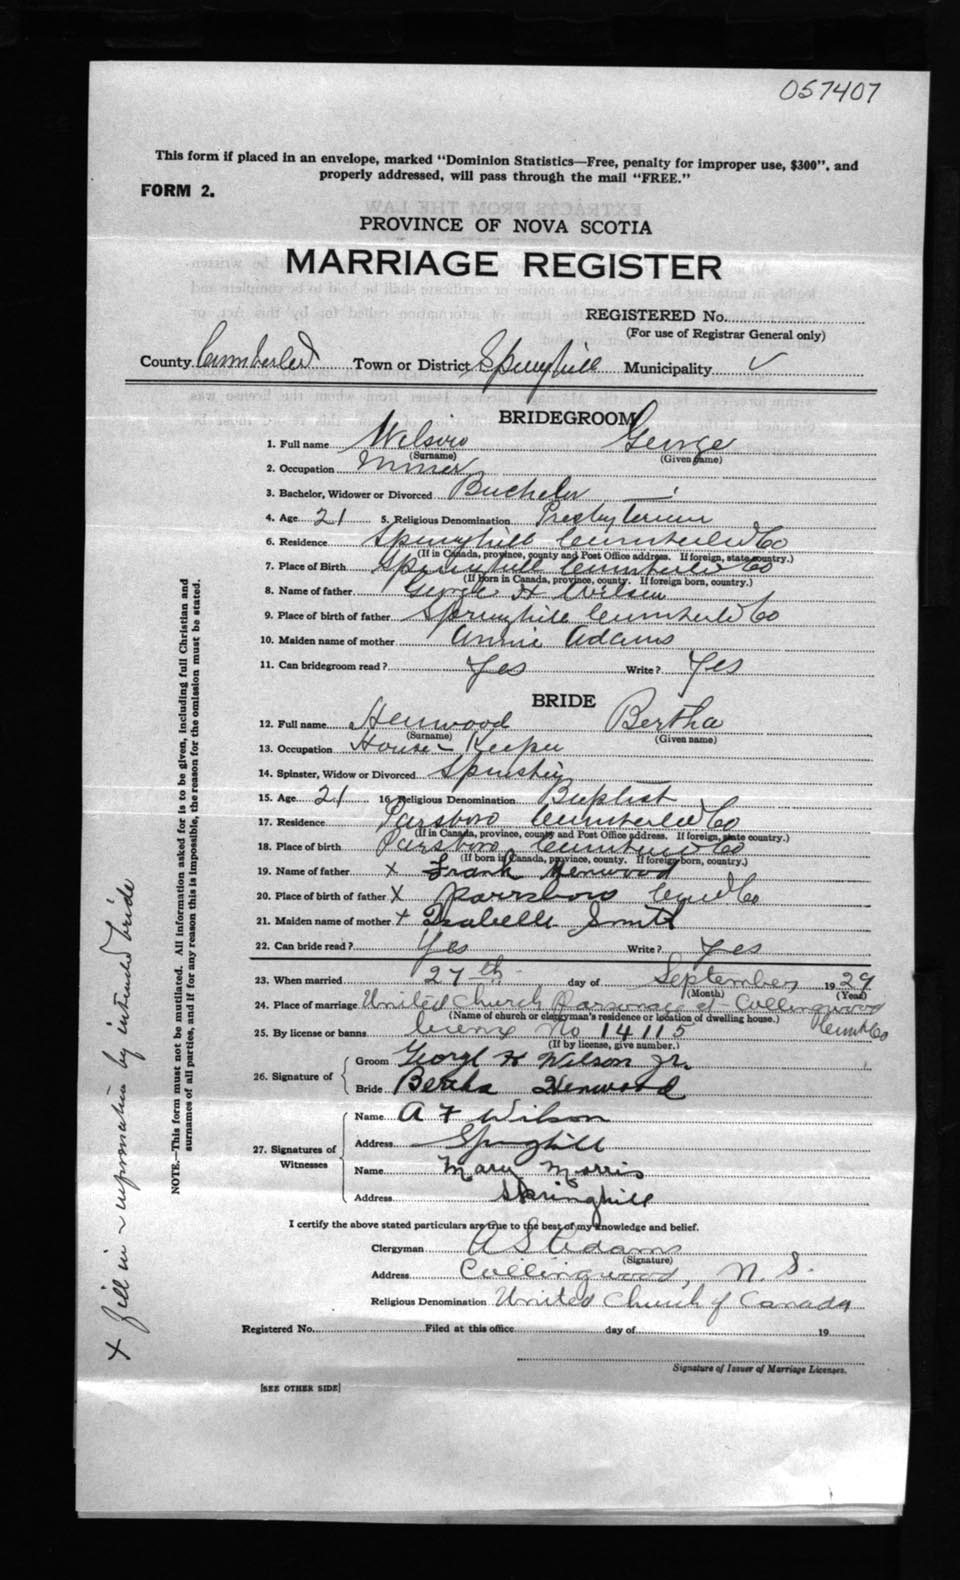 057407
This form if placed in an envelope, marked "Dominion Statistics—Free, penalty for improper use, $300", and
properly addressed, will pass through the mail "FREE."
FORM 2.
PROVINCE OF NOVA SCOTIA
MARRIAGE REGISTER
REGISTERED No.
(For use of Registrar General only)
County Cumberled Town or District Springhill Municipality ✓
BRIDEGROOM
1. Full name Wilson George
(Surname) (Given name)
2. Occupation Miner
3. Bachelor, Widower or Divorced Bachelor
4. Age 21 5. Religious Denomination Presbyterian
6. Residence Springhill Cumberled Co
(If in Canada, province, county and Post Office address. If foreign, state country.)
7. Place of Birth Springhill Cumberled Co
(If born in Canada, province, county. If foreign born, country.)
8. Name of father George H Wilson
9. Place of birth of father Springhill Cumberled Co
10. Maiden name of mother Annie Adams
11. Can bridegroom read? Yes Write? Yes
BRIDE
12. Full name Henwood Bertha
(Surname) (Given name)
13. Occupation House-Keeper
14. Spinster, Widow or Divorced Spinster
15. Age 21 16 Religious Denomination Baptist
17. Residence Parsboro Cumberled Co
(If in Canada, province, county and Post Office address. If foreign, state country.)
18. Place of birth Parsboro Cumberled Co
(If born in Canada, province, county. If foreign born, country.)
19. Name of father x Frank Henwood
20. Place of birth of father x Parrsboro Cum'd Co
21. Maiden name of mother + Isabelle Smith
22. Can bride read? Yes Write? Yes
23. When married 27th day of September 1929
(Month) (Year)
24. Place of marriage United Church Parsonage at Collingwood
(Name of church or clergyman's residence or location of dwelling house.) Cumb Co
25. By license or banns license No 14115
(If by license, give number.)
26. Signature of
Groom George H Wilson Jr.
Bride Bertha Henwood
27. Signatures of Witnesses
Name A F Wilson
Address Springhill
Name Mary Morris
Address Springhill
I certify the above stated particulars are true to the best of my knowledge and belief.
Clergyman A S Adams
(Signature)
Address Collingwood, N. S.
Religious Denomination United Church of Canada
Registered No. Filed at this office day of 19
Signature of Issuer of Marriage Licenses.
[SEE OTHER SIDE]
NOTE.—This form must not be mutilated. All information asked for is to be given, including full Christian and
surnames of all parties, and if for any reason this is impossible, the reason for the omission must be stated.
+ Fill in information by intended bride